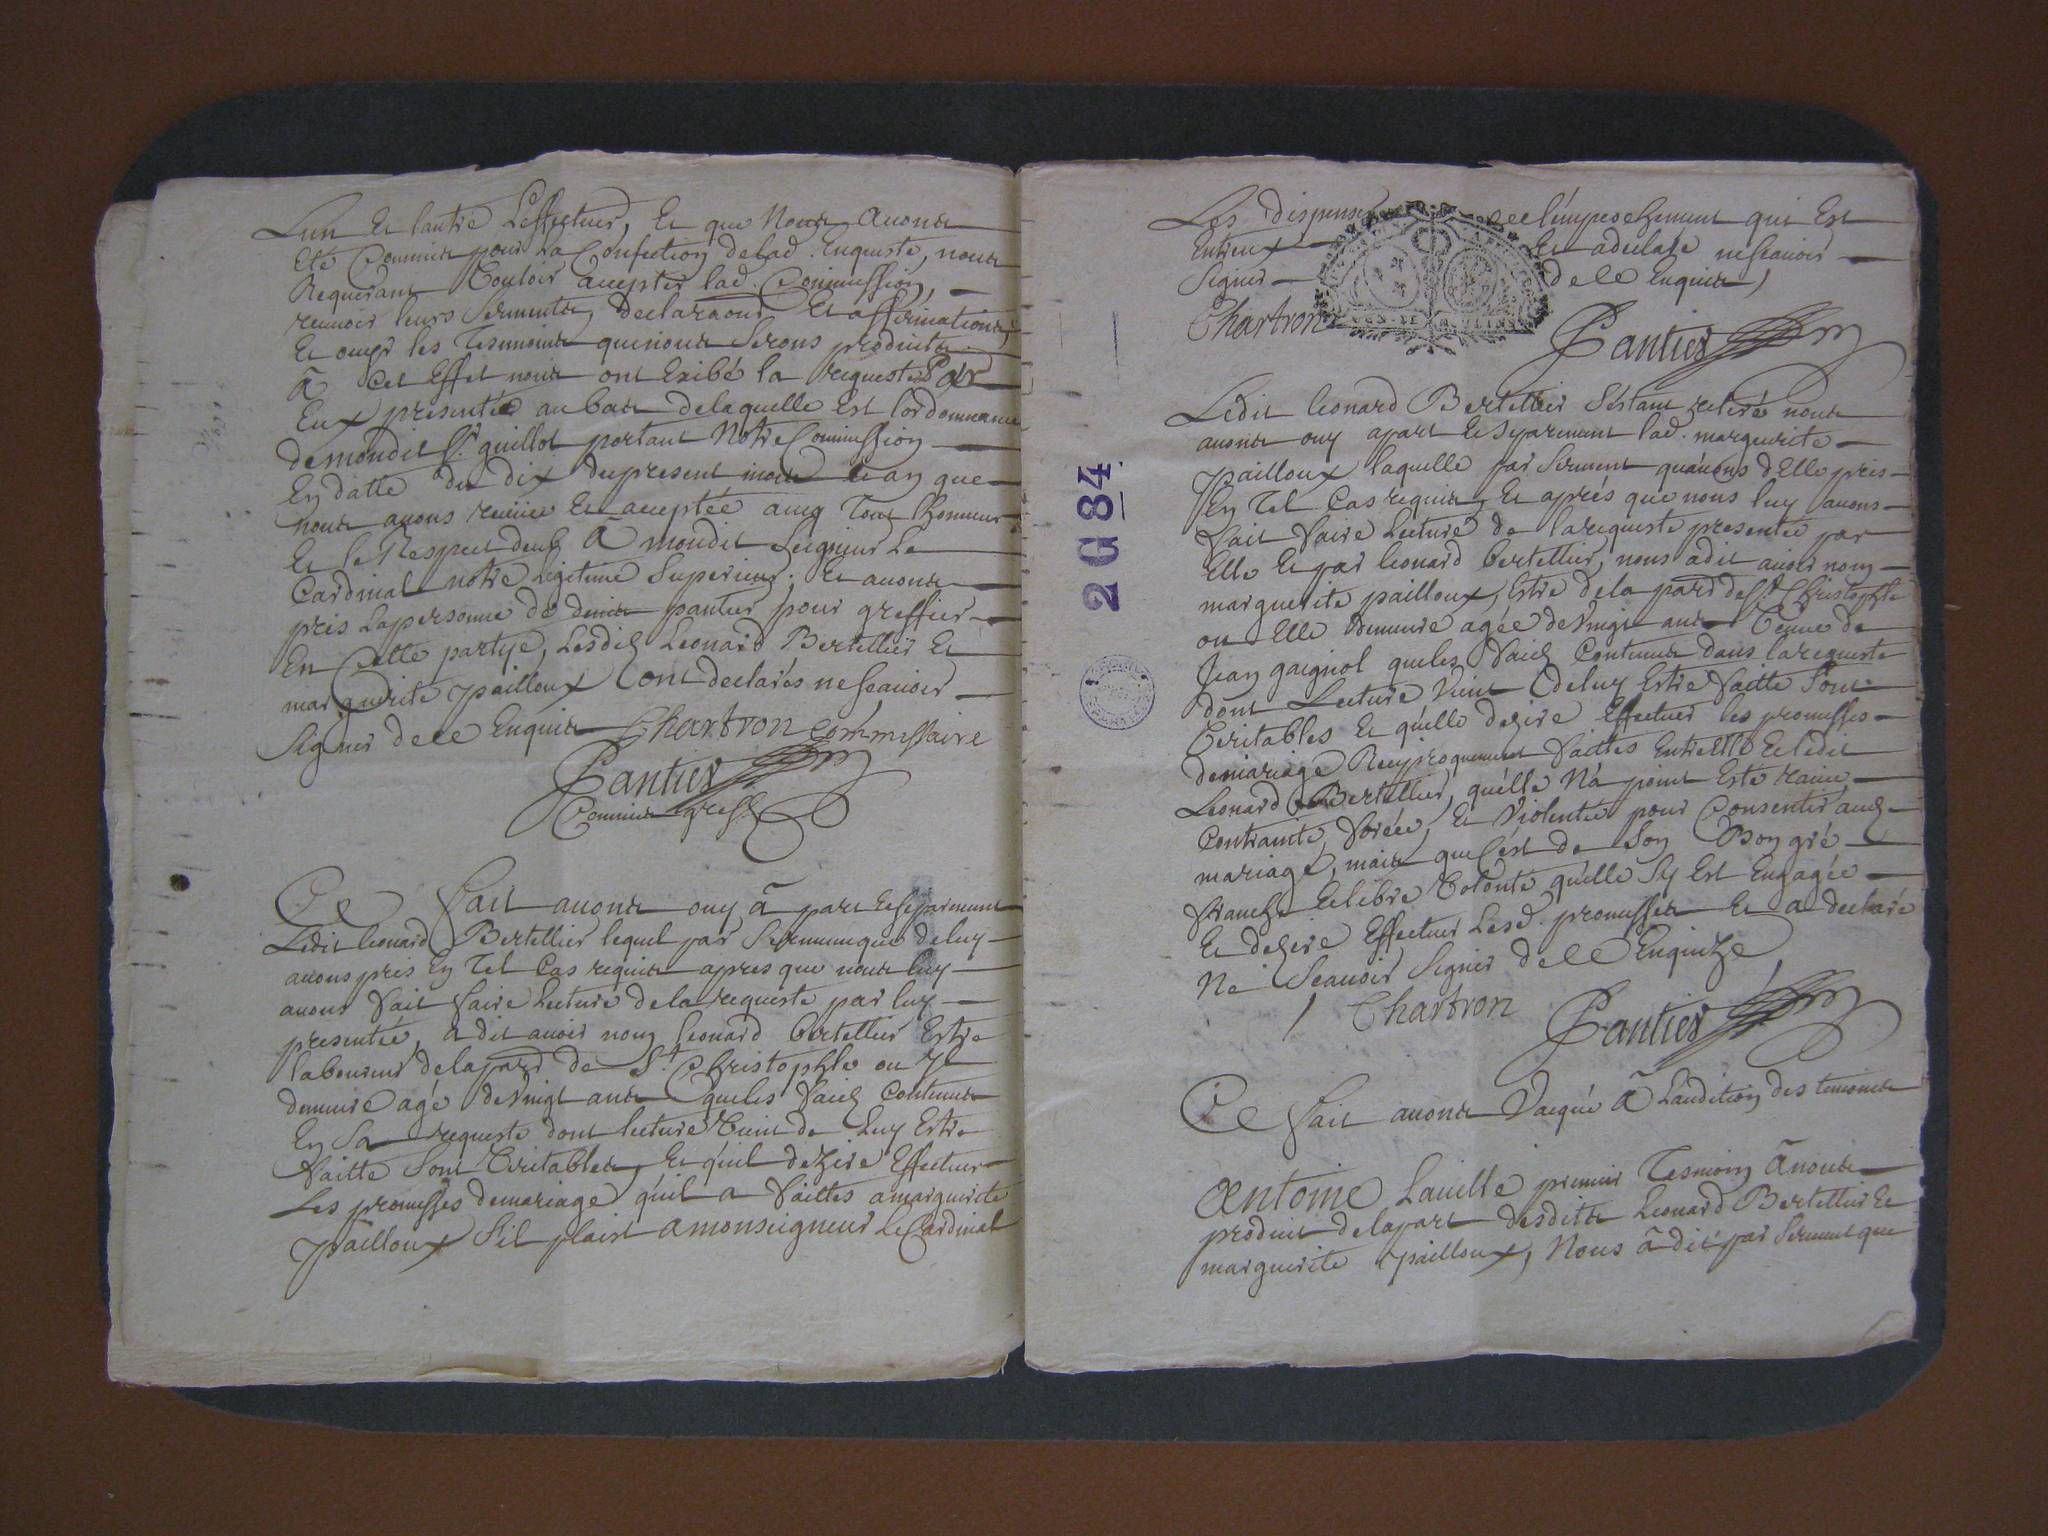 Lun Et lautre Leffectuer, Et que Nous auons
Eté Commis pour La Confection delad. Enqueste, nous
Requerant Vouloir accepter lad. Commission,
receuoir leurs serments, declaraons Et affirmations,
Et ouyr les Tesmoins quenous Serons produits
à Cet Effet nous ont Exibé la requeste Par
Eux presentée au bas delaquelle Est lordonnance
demondit Sr. guillot portant Notre Commission
En datte du dix dupresent mois que
nous auons receüe Et acceptée aueq Tout lhonneur
Et le Respect deub à mondit Seigneur Le
Cardinal notre legitime Superieur; Et auons
pris Lapersonne de denis pantier pour greffier
En Cette partye, Lesdits Leonard Bertellier Et
marguerite pailloux ont declarés nescauoir
Signer de ce Enquis Chartron commissaire
Pantier
Commis greff.
Ce fait auons ouy à part Et separement
Ledit leonard Bertellier lequel par Serment que deluy
auons pris En Tel Cas requis apres que nous luy
auons fait faire Lecture de la requeste par luy
presentée, a dit auoir nom leonard bertellier Estre
laboureur delaparr de St. Christophle ou Il
demeure agé de vingt ans queles faits Contenus
En Sa requeste dont lecture Vient de Luy Estre
faitte Sont Veritables, Et quil dezire Effectuer
Les promesses demariage quil a faittes a marguerite
pailloux Sil plaist amonseigneur Le Cardinal
Les dispenser de lempeschement qui Est
Entreux Et a declare nescauoir
Signer de ce Enquis
Chartron
Pantier
Ledit leonard Bertellier Sestant retiré nous
auons ouy apart Et Separement lad. marguerite
pailloux laquelle par Serment quauons dElle pris
En Tel Cas requis, Et aprés que nous luy auons
fait faire Lecture de larequeste presentée par
Elle Et par leonard bertellier, nous adit auoir nom
marguerite pailloux, Estre dela parr de St Christophle
ou Elle demeure agée deVingt ans Veuue de
Jean gaignol queles faits Contenus dans larequeste
dont Lecture Vient deluy Estre faitte Sont
Veritables Et quelle dezire Effectuer les promesses
demariage Reciproquement faittes Entre Elle Et ledit
Leonard Bertellier, quelle Na point Esté
Contrainte, forcée, Et Violentée pour Consentir aud.
mariage, mais que Cest de Son Bon gré
franche Et libre Volonté quelle Sy Est Engagée
Et dezire Effectuer Lesd. promesses Et a declaré
Ne Scauoir Signer de ce Enquize
Chartron
Pantier
Ce fait auons Vacqué à Laudition des temoins
Antoine Lauille premier Tesmoin à nous
produit delapart desdits Leonard Bertellier Et
marguerite pailloux, Nous à dit par Serment que
2 G 84